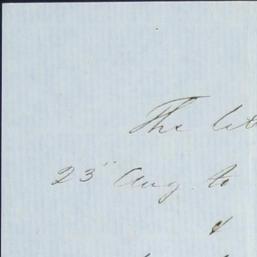 The
23" Aug. to
&